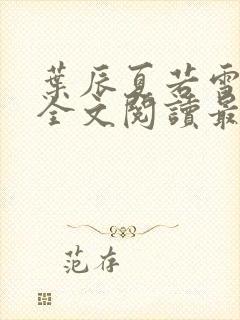 葉辰夏若雪
全文閱讀最
范存